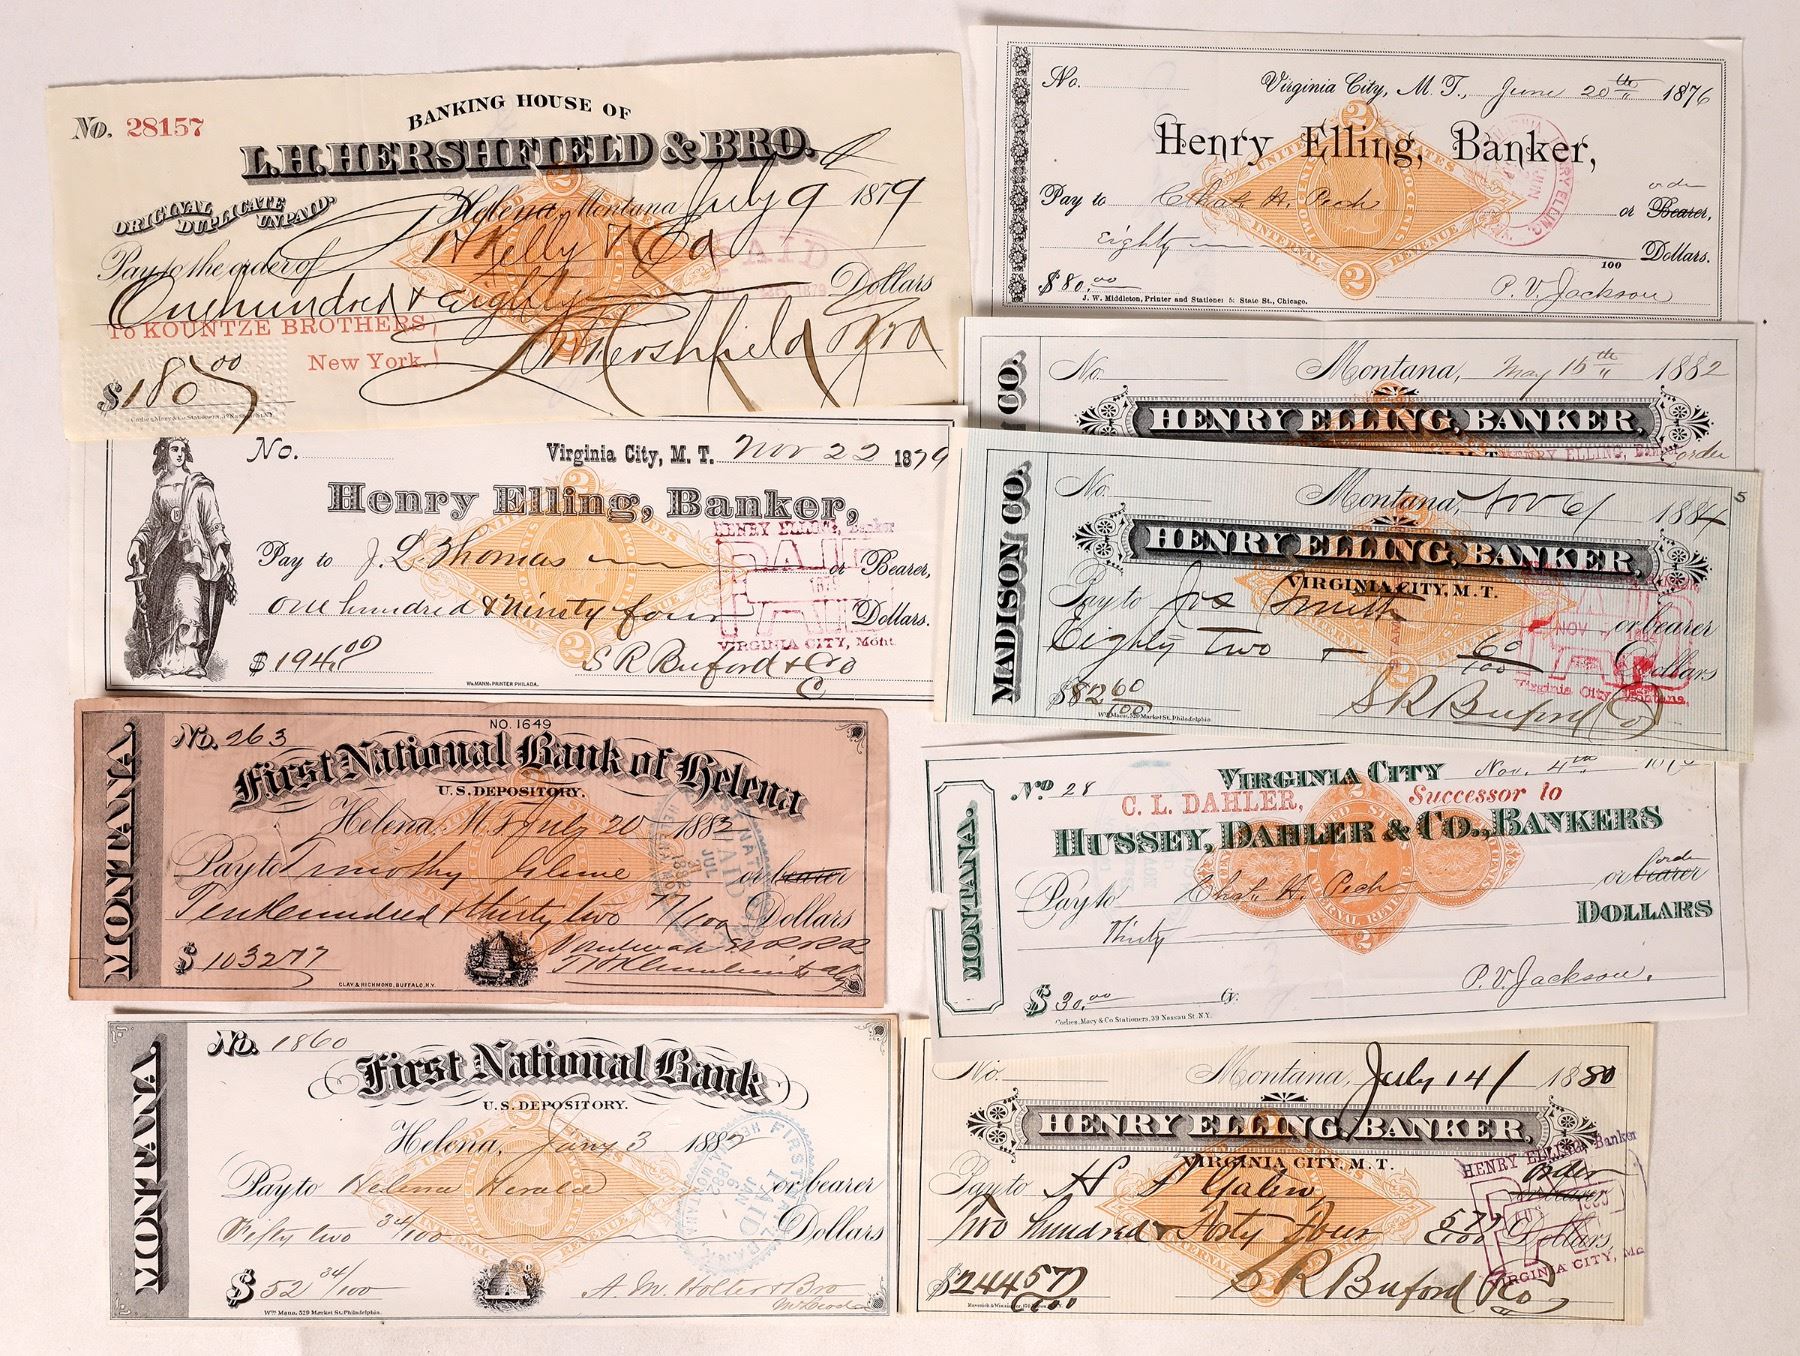 No. 28157
BANKING HOUSE OF
L.H. HERSHFIELD & BRO.
ORIGINAL DUPLICATE UNPAID
Helena, Montana July 9 1879
Pay to the order of H Kelly & Co
One hundred & Eighty Dollars
TO KOUNTZE BROTHERS
New York.
$ 180 00
L H Hershfield & Bro
PAID
No.
Virginia City, M. T. Nov 22 1879
Henry Elling, Banker,
Pay to J. L. Thomas or Bearer,
One hundred & Ninety four Dollars.
$ 194.00
S R Buford & Co
WM MANN, PRINTER PHILADA.
HENRY ELLING, Banker
PAID
VIRGINIA CITY, Mont.
MONTANA
No. 263
NO. 1649
First National Bank of Helena
U.S. DEPOSITORY.
Helena, M.T. July 20 1882
Pay to Timothy or bearer
Ten hundred & thirty two 77/100 Dollars
$ 1032 77
CLAY & RICHMOND, BUFFALO, N.Y.
MONTANA
No. 1860
First National Bank
U.S. DEPOSITORY.
Helena, Jany 3 1882
Pay to Helena Herald or bearer
Fifty two 34/100 Dollars
$ 52 34/100
A. M. Holter & Bro
Wm Mann, 529 Market St. Philadelphia.
FIRST NATIONAL BANK
PAID
JAN
No.
Virginia City, M. T., June 20th 1876
Henry Elling, Banker,
Pay to Chas H. Peck or Bearer, order
Eighty 100 Dollars.
$ 80.00
P. V. Jackson
J. W. Middleton, Printer and Stationer 5 State St., Chicago.
No.
Montana, May 15th 1882
CO.
HENRY ELLING, BANKER,
HENRY ELLING, Banker
order
MADISON CO.
No.
Montana, Nov 6 1884 5
HENRY ELLING, BANKER,
VIRGINIA CITY, M.T.
Pay to Jos Smith or bearer
Eighty Two & 60/100 Dollars
$ 82 60/100
S R Buford & Co
Wm Mann, 529 Market St. Philadelphia
PAID
NOV
Virginia City, Montana.
MONTANA.
No 28
VIRGINIA CITY Nov. 4th
C. L. DAHLER, Successor to
HUSSEY, DAHLER & CO., BANKERS
Pay to Chas H. Peck or bearer order
Thirty DOLLARS
$ 30.00 Cy.
P. V. Jackson.
Corlies, Macy & Co. Stationers, 39 Nassau St. N.Y.
No.
Montana, July 14 1880
HENRY ELLING, BANKER,
VIRGINIA CITY, M.T.
Pay to H S Galen or bearer order
Two hundred & Forty Four 57/100 Dollars
$ 244 57/100
S R Buford & Co
HENRY ELLING, Banker
VIRGINIA CITY, Mo